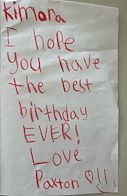 Kimara
I hope
you have
the best
birthday
EVER!
Love
Paxton